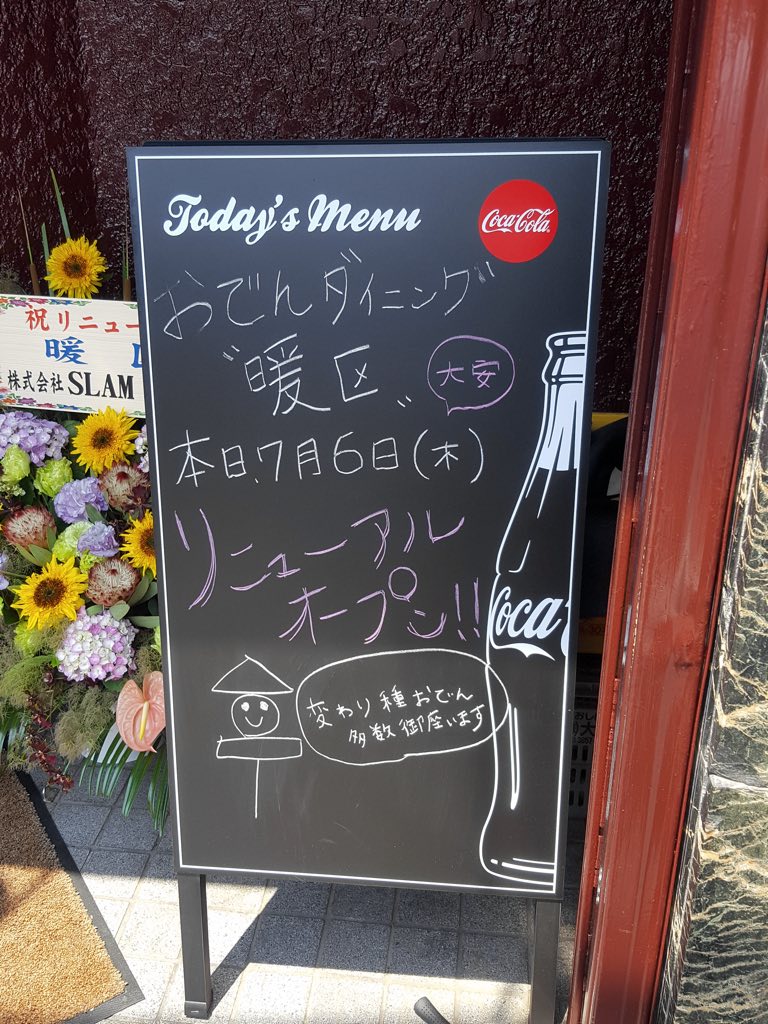 Today's Menu
Coca-Cola
おでんダイニング
"暖区"
大安
本日、7月6日(木)
リニューアル
オープン!!
変わり種おでん
多数御座います
Coca
祝リニュー
暖
株式会社SLAM